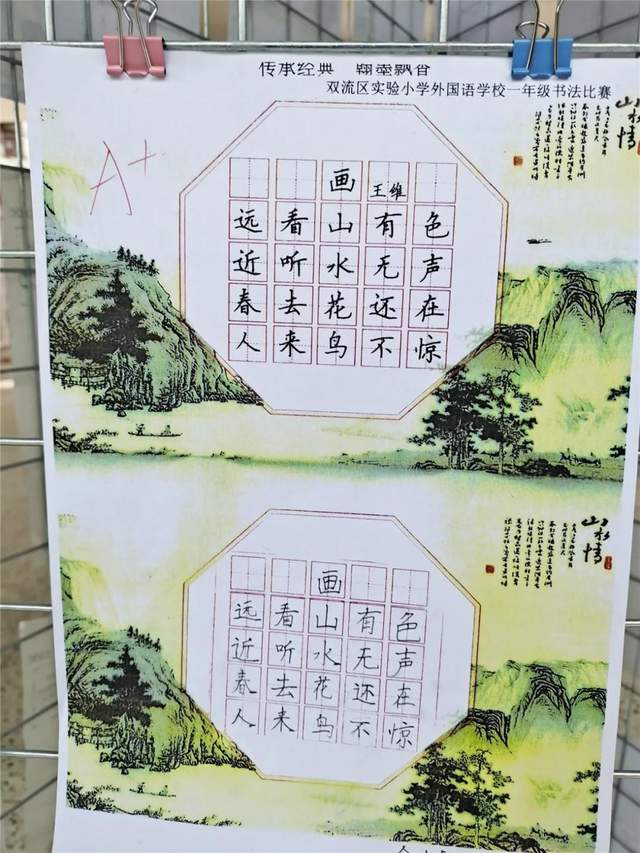 传承经典 翰墨飘香
双流区实验小学外国语学校一年级书法比赛
A+
山水情
画
王维
远看山有色
近听水无声
春去花还在
人来鸟不惊
山水情
画
远看山有色
近听水无声
春去花还在
人来鸟不惊